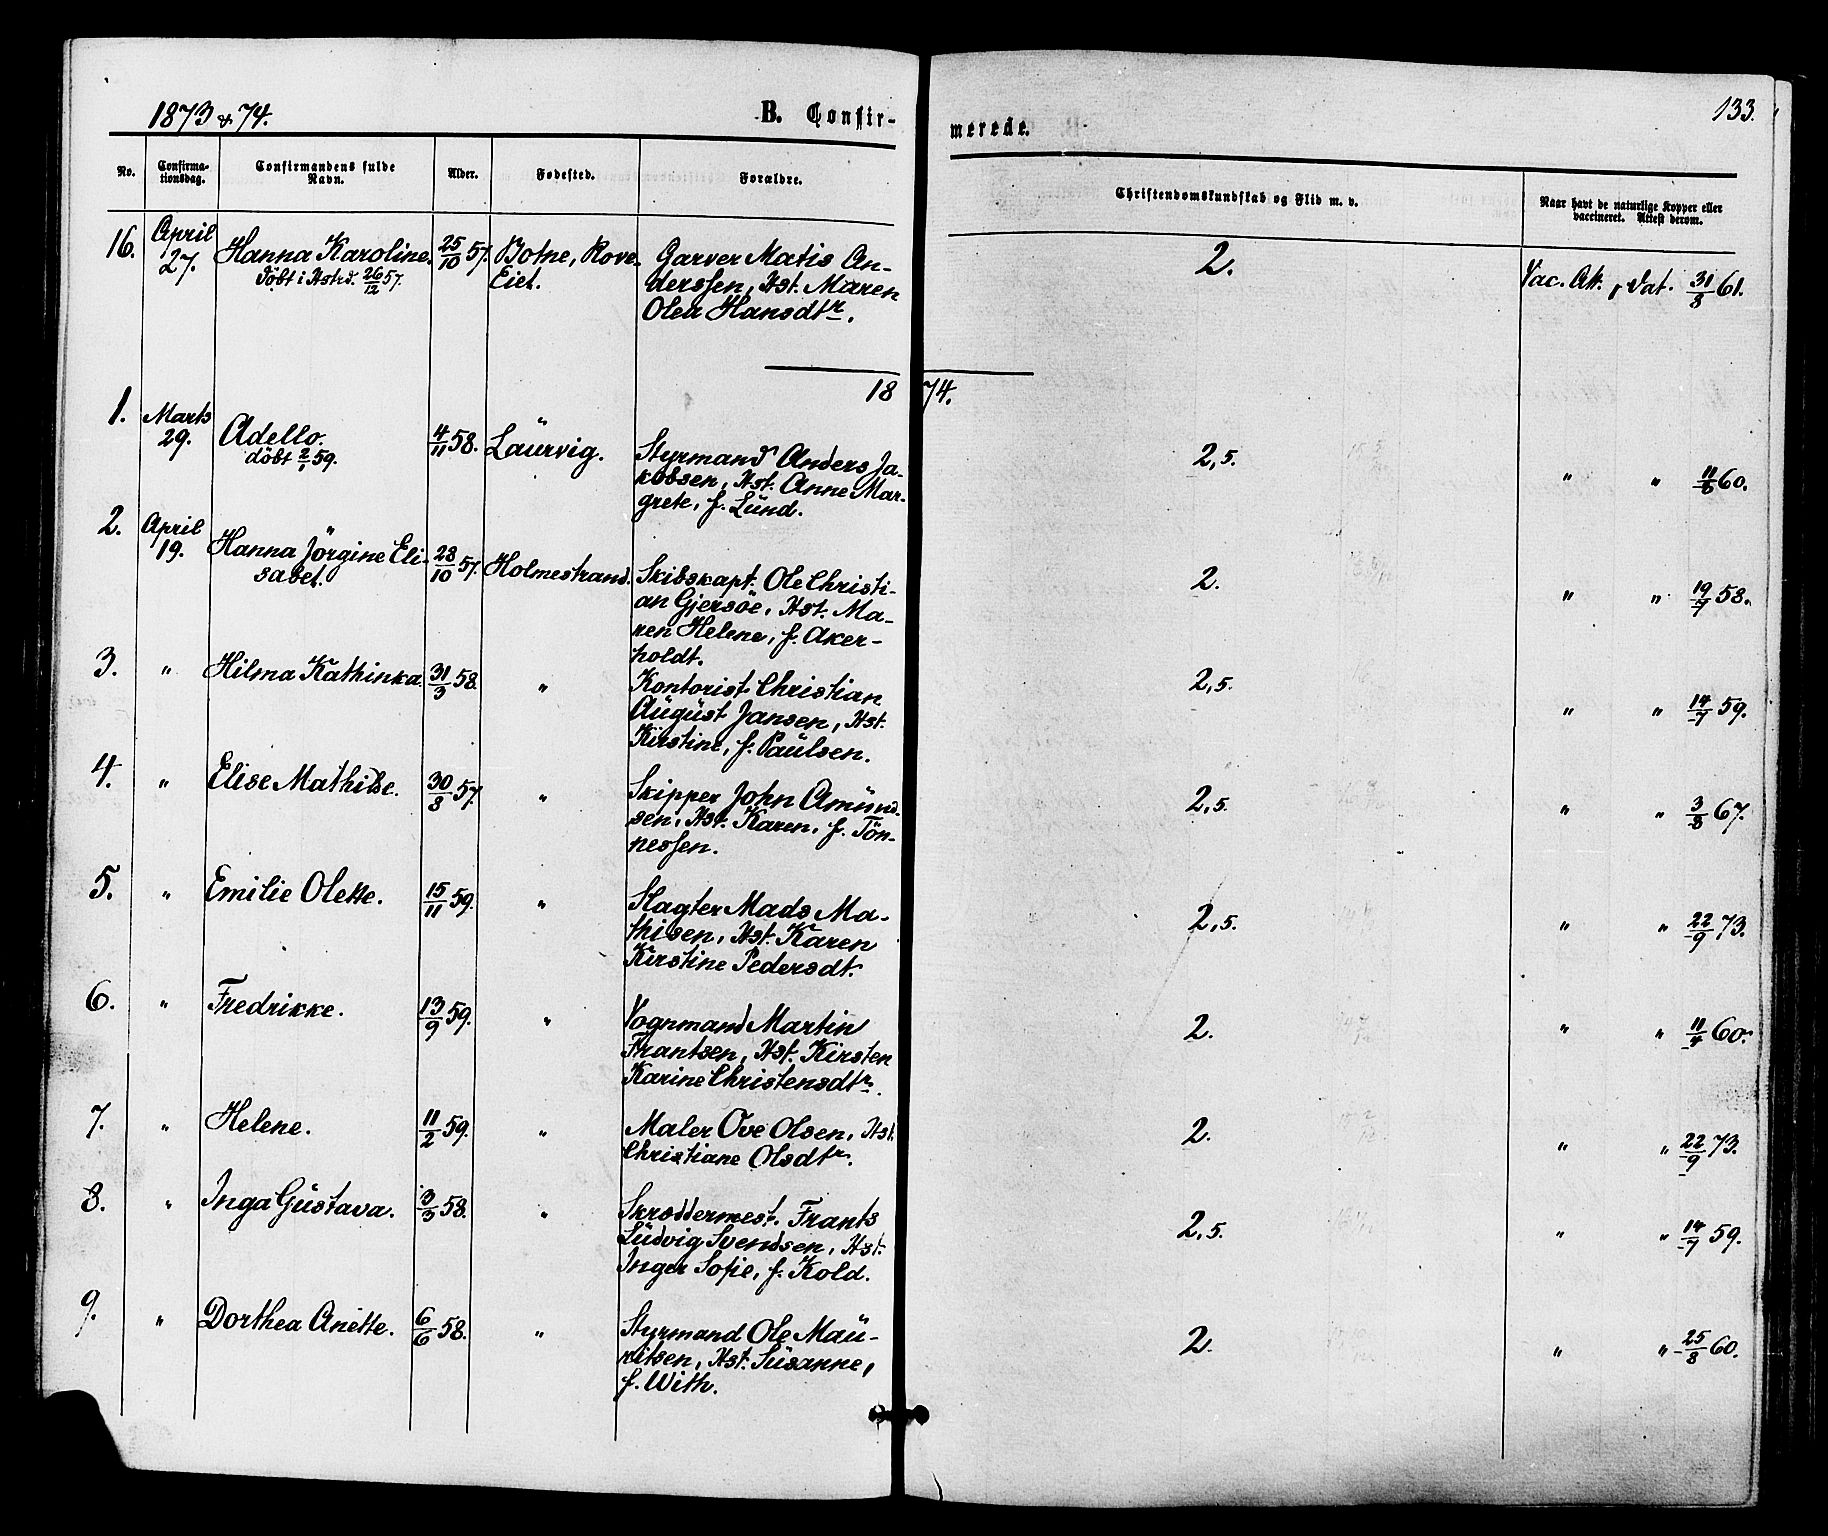 1873 & 74.
B. Confir-
merede.
133.
No.
Confirma-
tionsdag.
Confirmandens fulde
Navn.
Alder.
Fødested.
Forældre.
Christendomskundskab og Flid m. v.
Naar havt de naturlige Kopper eller
vaccineret. Attest derom.
16. April 27. Hanna Karoline. 25/10 57. Botne, Rove-
Döbt i Hstrd. 26/12 57.
Eiet.
Garver Matis An-
derssen, Hst. Maren
Olea Hansdtr.
2.
Vac. Att. , Dat. 31/8 61.
1874.
1. Marts 29. Adello. 4/11 58. Laurvig.
döbt 2/1 59.
Styrmand Anders Ja-
kobsen, Hst. Anne Mar-
grete, f. Lund.
2,5.
" " 11/8 60.
2. April 19. Hanna Jörgine Eli-
sabet. 28/10 57. Holmestrand.
Skibskapt. Ole Christi-
an Gjersöe, Hst. Ma-
ren Helene, f. Aker-
holdt.
2.
" " 19/7 58.
3. " Hilma Kathinka. 31/3 58. "
Kontorist Christian
August Jansen, Hst.
Kirstine, f. Paulsen.
2,5.
" " 14/7 59.
4. " Elise Mathilde. 30/8 57. "
Skipper John Amund-
sen, Hst. Karen, f. Tön-
nessen.
2,5.
" " 3/8 67.
5. " Emilie Olette. 15/11 59. "
Slagter Mads Ma-
thisen, Hst. Karen
Kirstine Pedersdt.
2,5.
" " 22/9 73.
6. " Fredrikke. 13/9 59. "
Vognmand Martin
Frantsen, Hst. Kirsten
Karine Christensdtr.
2.
" " 11/4 60.
7. " Helene. 11/2 59. "
Maler Ove Olsen, Hst.
Christiane Olsdtr.
2.
" " 22/9 73.
8. " Inga Gustava. 3/3 58. "
Skræddermest. Frants
Ludvig Svendsen, Hst.
Inger Sofie, f. Kold.
2,5.
" " 14/7 59.
9. " Dorthea Anette. 6/6 58. "
Styrmand Ole Mau-
ritsen, Hst. Susanne,
f. With.
2.
" " 25/8 60.